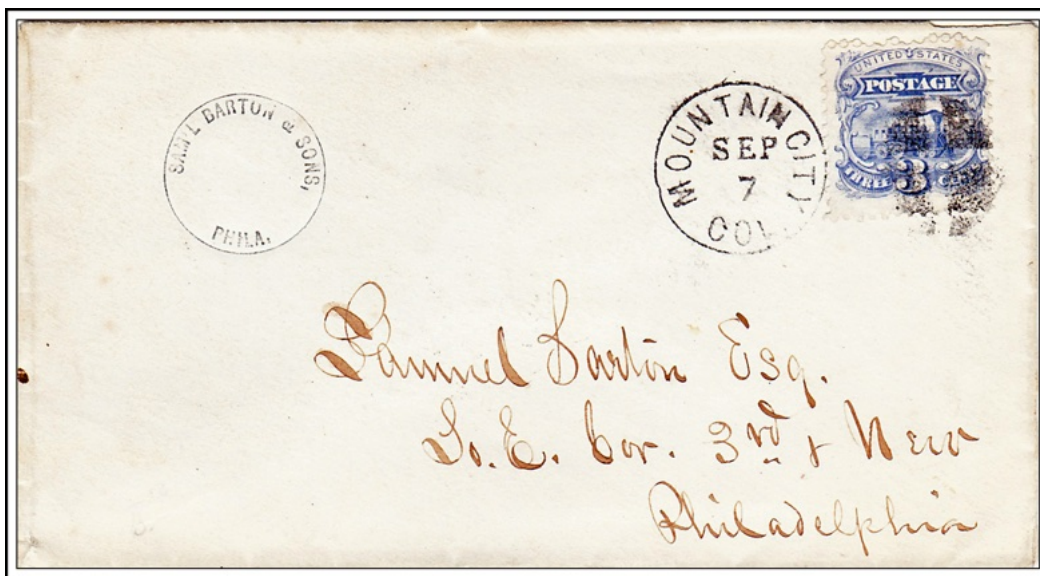 SAM'L BARTON & SONS,
PHILA.
MOUNTAIN CITY
SEP
7
COL.
UNITED STATES
POSTAGE
THREE 3 CENTS
Samuel Barton Esq.
So. E. Cor. 3rd & New
Philadelphia